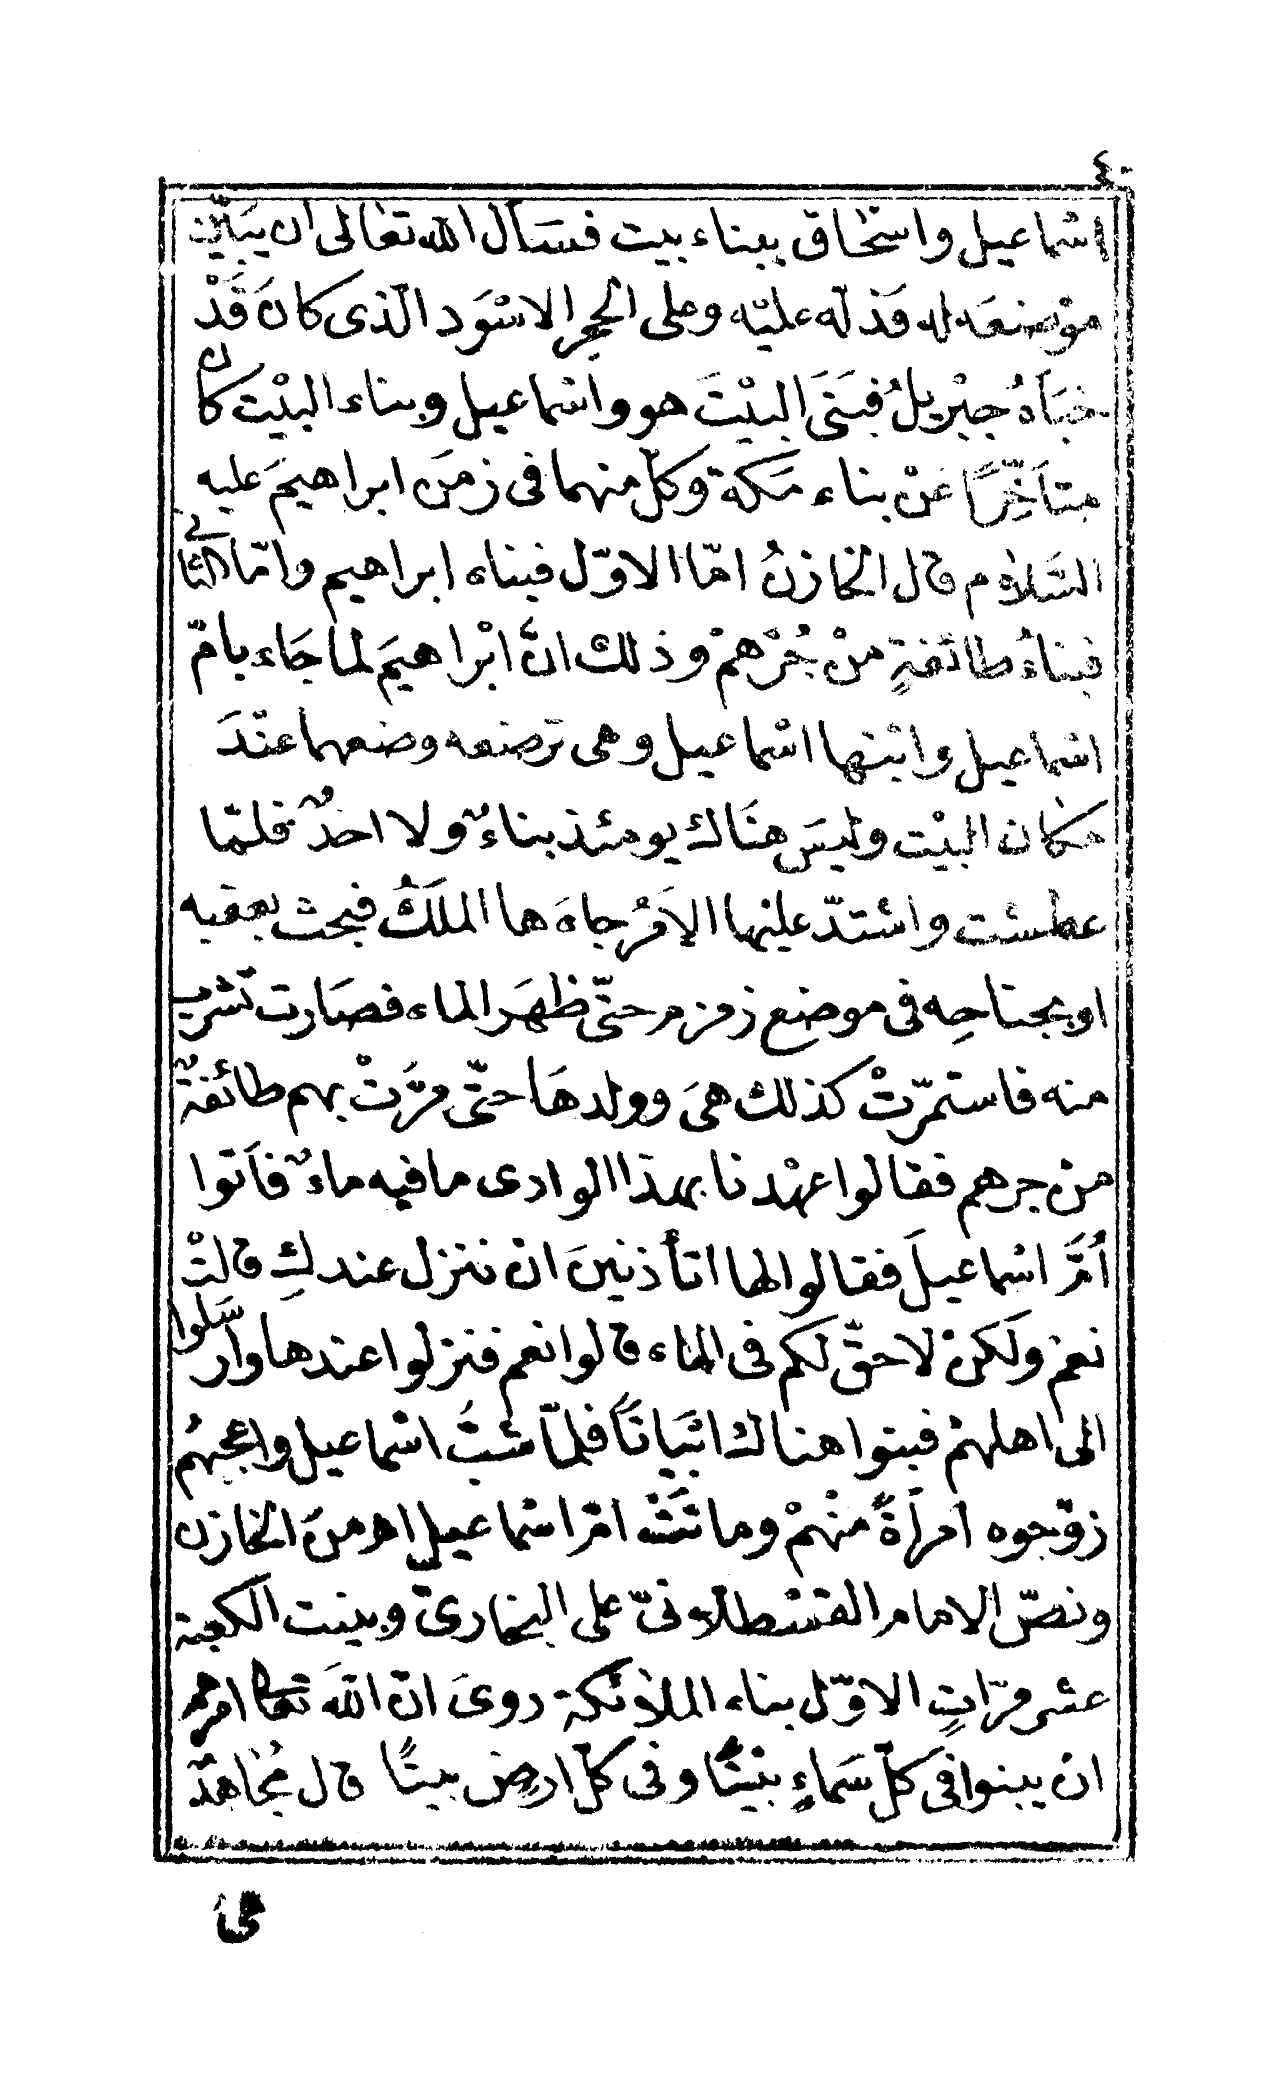 ٤٠
اسْماعيل واسْحٰاق ببناء بيت فسَأل الله تعٰالى ان يبَيّن
موْضعَه له فَدَلّه عليْه وعلى الحجر الاسْوَد الّذى كانَ قَدْ
خبَأهُ جبْريلُ فبَنَى البيْتَ هو واسْماعيل وبناء البيْت كان
متأخِّرًا عَنْ بناء مَكة وكلّ منهما فى زمَن ابراهيمَ عليه
السَّلاٰم قال الخازنُ امّا الاوّل فبناه ابراهيم وامّا الثانى
فبناهُ طائفةٍ منْ جُرْهمْ وذلك انَّ ابْراهيمَ لما جَاء بامّ
اسْماعيل وابْنها اسْماعيل وهى ترضعه وضعهما عنْدَ
مكٰان البيْت وليسَ هنَاك يومئذ بناءٌ ولا احدٌ فلمّا
عطشت واشْتدّ عليْها الاَمْرُ جاءَ ها الملَكُ فبحث بعقبه
او بجناحِه فى موضع زمزم حتّى ظهَر الماء فصَارت تشرب
منه فاستمرّتْ كذلك هىَ وولدهَا حتّى مرَّتْ بهم طائفةٌ
منْ جرهم فقالوا عهْدنا بهذا الوادى ما فيه ماءٌ فأتوا
أُمَّ اسْماعيلَ فقالوا لها اتأذنينَ انْ ننزل عندكِ قالتْ
نعمْ ولَكنْ لاحقّ لَكم فى الماء قالوا نعم فنزلوا عندها وارسَلوا
الى اهلهمْ فبنوا هناك ابْيَاتاً فلمّا شبَّ اسْماعيل واعجبهُم
زوّجوه امرأةً منْهمْ وماتَتْ امّ اسْماعيل اهـ منَ الخازن
ونصّ الامام القسْطلاٰنىّ على البخارىّ وبنيت الكعبة
عشر مرّاتٍ الاوّل بناء الملاٰئكة روىَ انّ اللهَ تعالى امرهم
انْ يبنوا فى كلّ سَماءٍ بيْتًا وفى كلّ ارضٍ بيتًا قال مُجٰاهدٌ
هىَ